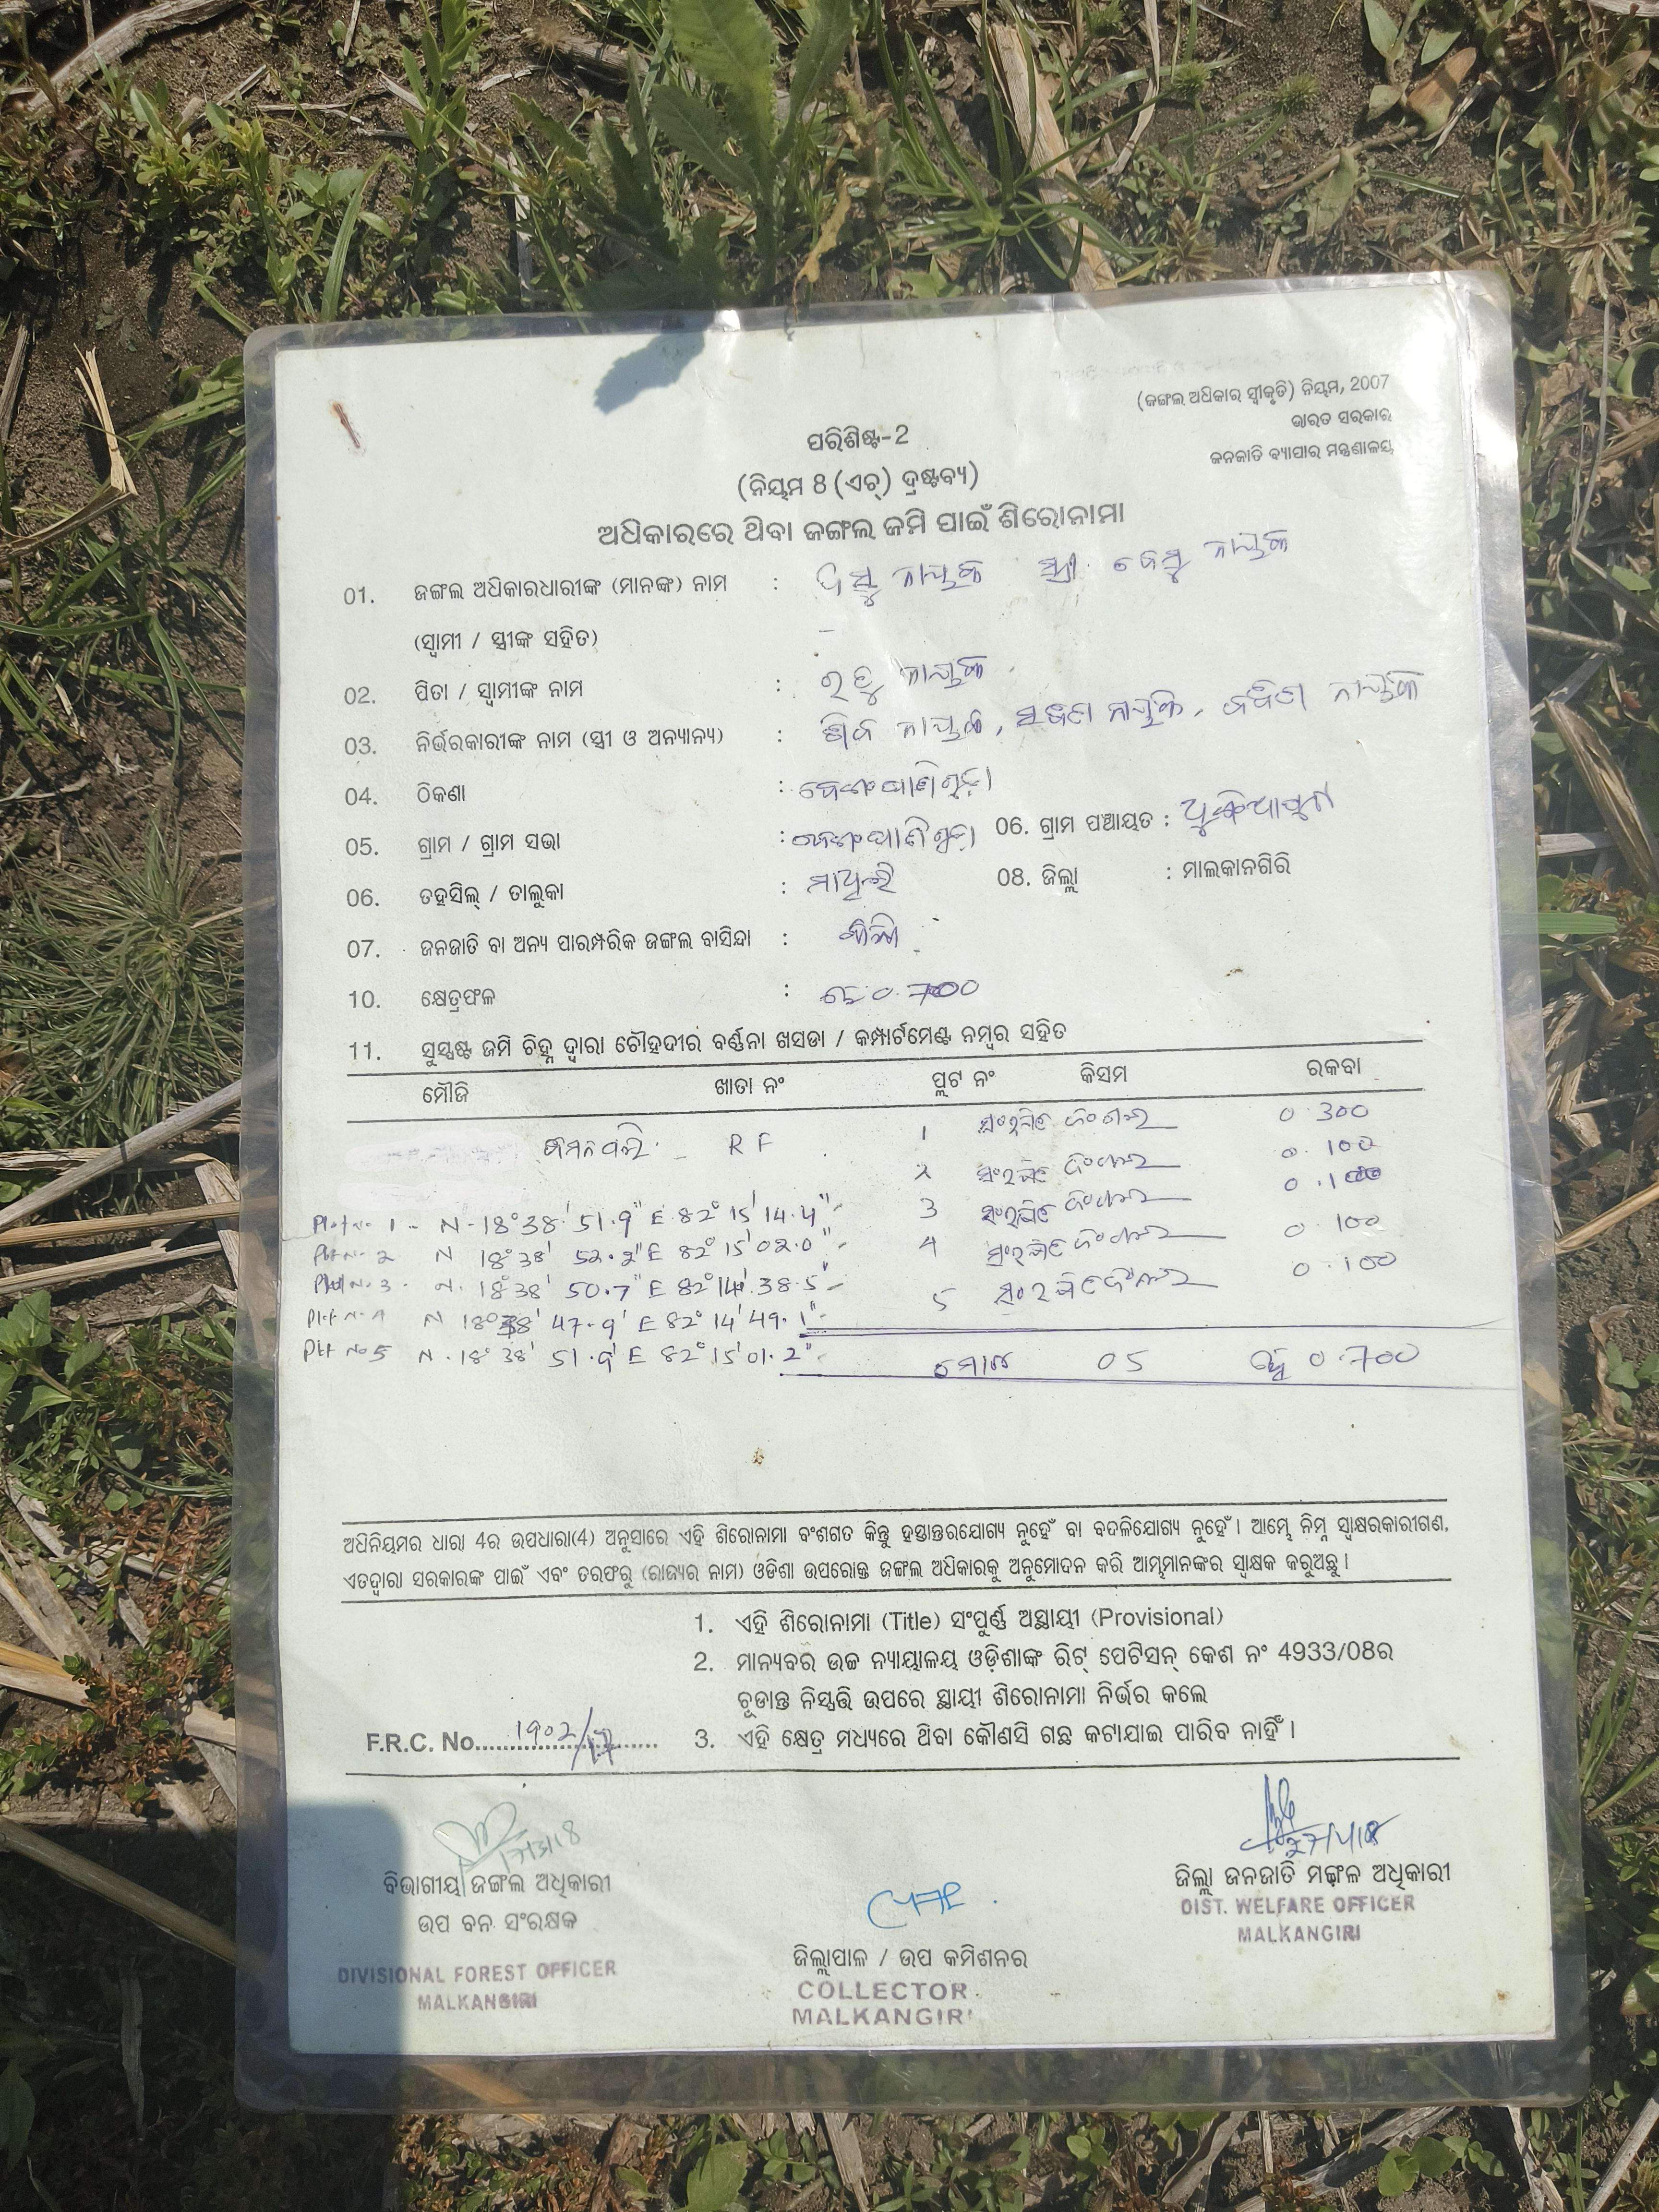 (ଜଙ୍ଗଲ ଅଧିକାର ସ୍ୱୀକୃତି) ନିୟମ, 2007
ଭାରତ ସରକାର
ଜନଜାତି ବ୍ୟାପାର ମନ୍ତ୍ରଣାଳୟ
ପରିଶିଷ୍ଟ-2
(ନିୟମ 8 (ଏଚ୍) ଦ୍ରଷ୍ଟବ୍ୟ)
ଅଧିକାରରେ ଥିବା ଜଙ୍ଗଲ ଜମି ପାଇଁ ଶିରୋନାମା
01. ଜଙ୍ଗଲ ଅଧିକାରଧାରୀଙ୍କ (ମାନଙ୍କ) ନାମ : ନାୟକ ସ୍ତ୍ରୀ ନାୟକ
(ସ୍ୱାମୀ / ସ୍ତ୍ରୀଙ୍କ ସହିତ)
02. ପିତା / ସ୍ୱାମୀଙ୍କ ନାମ : ନାୟକ
03. ନିର୍ଭରକାରୀଙ୍କ ନାମ (ସ୍ତ୍ରୀ ଓ ଅନ୍ୟାନ୍ୟ) : ନାୟକ, ନାୟକ, ନାୟକ
04. ଠିକଣା :
05. ଗ୍ରାମ / ଗ୍ରାମ ସଭା : 06. ଗ୍ରାମ ପଞ୍ଚାୟତ :
06. ତହସିଲ୍ / ତାଲୁକା : 08. ଜିଲ୍ଲା : ମାଲକାନଗିରି
07. ଜନଜାତି ବା ଅନ୍ୟ ପାରମ୍ପରିକ ଜଙ୍ଗଲ ବାସିନ୍ଦା :
10. କ୍ଷେତ୍ରଫଳ : ହେ 0.700
11. ସୁସ୍ପଷ୍ଟ ଜମି ଚିହ୍ନ ଦ୍ୱାରା ଚୌହଦୀର ବର୍ଣ୍ଣନା ଖସଡା / କମ୍ପାର୍ଟମେଣ୍ଟ ନମ୍ବର ସହିତ
ମୌଜି ଖାତା ନଂ ପ୍ଲଟ ନଂ କିସମ ରକବା
RF 1 ସଂରକ୍ଷିତ ଜଂଗଲ 0.300
2 ସଂରକ୍ଷିତ ଜଂଗଲ 0.100
3 ସଂରକ୍ଷିତ ଜଂଗଲ 0.100
4 ସଂରକ୍ଷିତ ଜଂଗଲ 0.100
5 ସଂରକ୍ଷିତ ଜଂଗଲ 0.100
Plot No 1 - N-18° 38' 51.9" E 82° 15' 14.4"
Plot No 2 N 18° 38' 52.2" E 82° 15' 02.0"
Plot No. 3 - N. 18° 38' 50.7" E 82° 14' 38.5"
Plot No. 4 N 18° 38' 47.9' E 82° 14' 49.1"
Plot No 5 N. 18° 38' 51.9' E 82° 15' 01.2"
ମୋଟ 05 ହେ 0.700
ଅଧିନିୟମର ଧାରା 4ର ଉପଧାରା(4) ଅନୁସାରେ ଏହି ଶିରୋନାମା ବଂଶଗତ କିନ୍ତୁ ହସ୍ତାନ୍ତରଯୋଗ୍ୟ ନୁହେଁ ବା ବଦଳିଯୋଗ୍ୟ ନୁହେଁ । ଆମ୍ଭେ ନିମ୍ନ ସ୍ୱାକ୍ଷରକାରୀଗଣ,
ଏତଦ୍ୱାରା ସରକାରଙ୍କ ପାଇଁ ଏବଂ ତରଫରୁ (ରାଜ୍ୟର ନାମ) ଓଡିଶା ଉପରୋକ୍ତ ଜଙ୍ଗଲ ଅଧିକାରକୁ ଅନୁମୋଦନ କରି ଆମ୍ଭମାନଙ୍କର ସ୍ୱାକ୍ଷକ କରୁଅଛୁ ।
1. ଏହି ଶିରୋନାମା (Title) ସଂପୁର୍ଣ୍ଣ ଅସ୍ଥାୟୀ (Provisional)
2. ମାନ୍ୟବର ଉଚ୍ଚ ନ୍ୟାୟାଳୟ ଓଡ଼ିଶାଙ୍କ ରିଟ୍ ପେଟିସନ୍ କେଶ ନଂ 4933/08ର
ଚୂଡାନ୍ତ ନିସ୍ପତ୍ତି ଉପରେ ସ୍ଥାୟୀ ଶିରୋନାମା ନିର୍ଭର କଲେ
F.R.C. No. 1902/17 3. ଏହି କ୍ଷେତ୍ର ମଧ୍ୟରେ ଥିବା କୌଣସି ଗଛ କଟାଯାଇ ପାରିବ ନାହିଁ ।
ବିଭାଗୀୟ ଜଙ୍ଗଲ ଅଧିକାରୀ
ଉପ ବନ ସଂରକ୍ଷକ
DIVISIONAL FOREST OFFICER
MALKANGIRI
ଜିଲ୍ଲାପାଳ / ଉପ କମିଶନର
COLLECTOR
MALKANGIRI
ଜିଲ୍ଲା ଜନଜାତି ମଙ୍ଗଳ ଅଧିକାରୀ
DIST. WELFARE OFFICER
MALKANGIRI